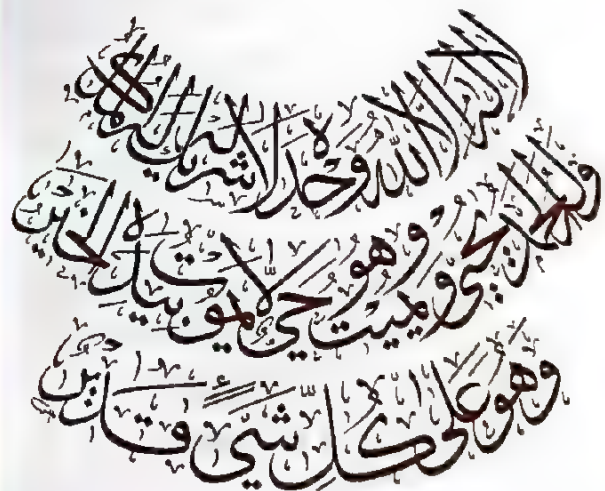 لا إله إلا الله وحده لا شريك له له الملك
وله الحمد يحيي ويميت وهو حي لا يموت بيده الخير
وهو على كل شيء قدير